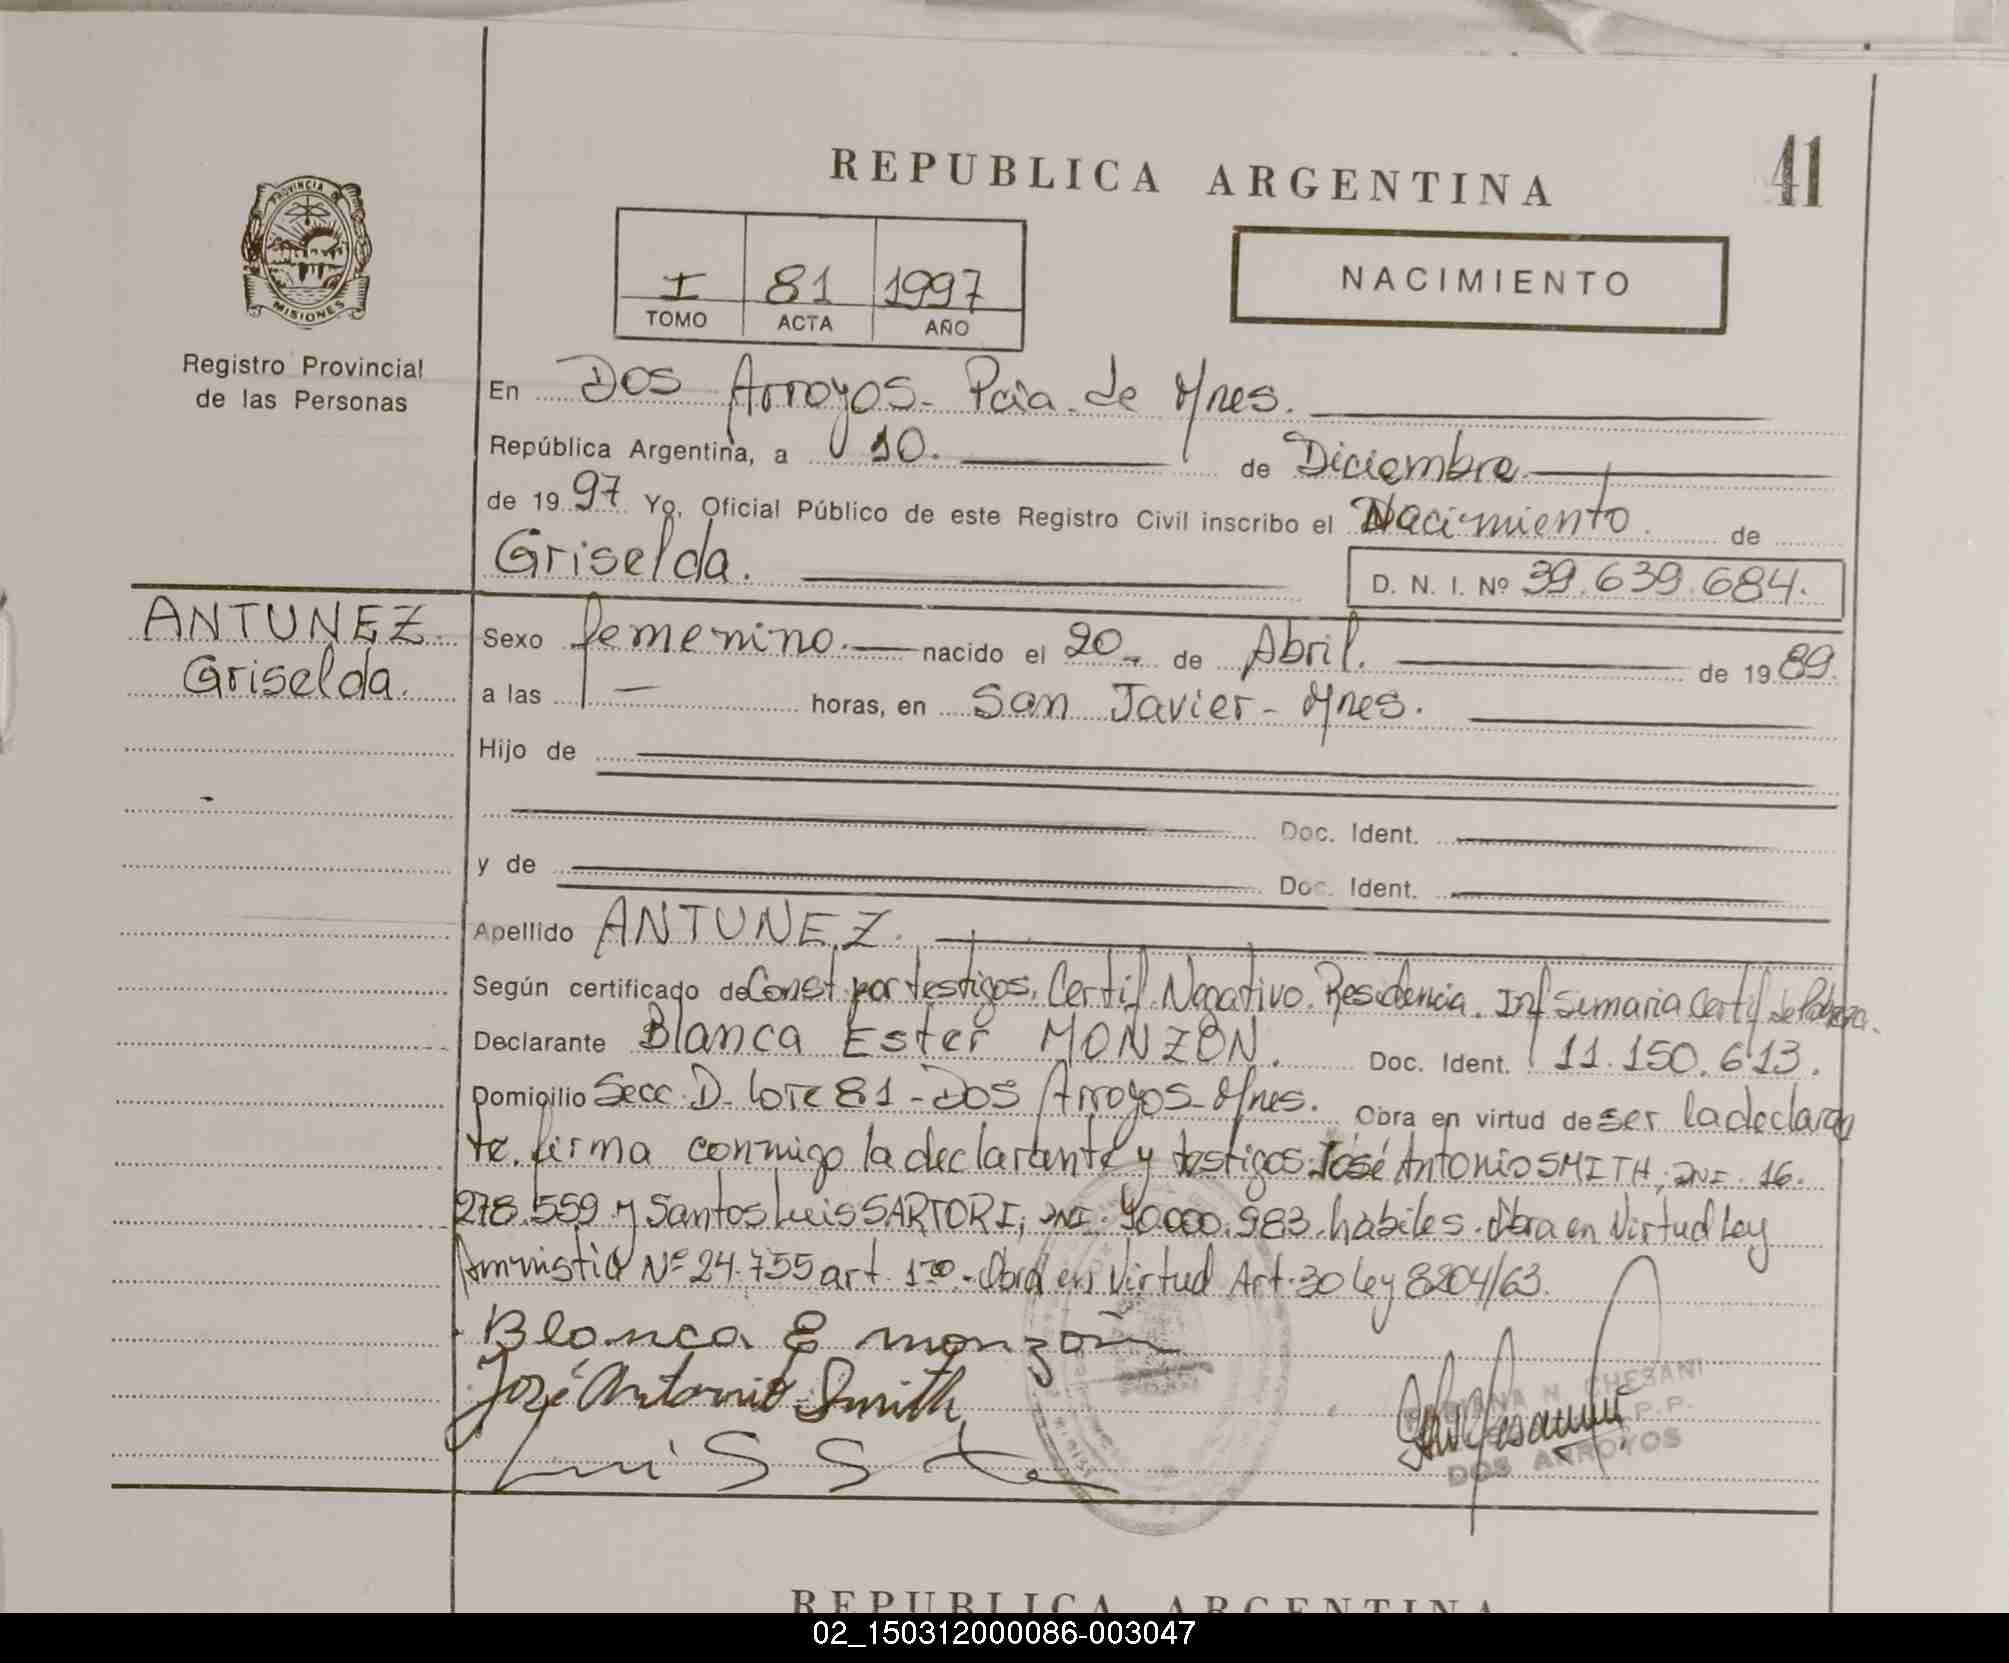 REPUBLICA ARGENTINA
41
PROVINCIA
MISIONES
Registro Provincial
de las Personas
I 81 1997
TOMO ACTA AÑO
NACIMIENTO
En Dos Arroyos - Pcia. de Mnes.
República Argentina, a 10. de Diciembre
de 1997 Yo, Oficial Público de este Registro Civil inscribo el Nacimiento de
Griselda. D. N. I. Nº 39.639.684.
ANTUNEZ
Griselda.
Sexo femenino. nacido el 20 de Abril. de 1989.
a las — horas, en San Javier - Mnes.
Hijo de
Doc. Ident.
y de Doc. Ident.
Apellido ANTUNEZ.
Según certificado de Const por testigos. Certif. Negativo. Residencia. Inf Sumaria Certif de Pobreza.
Declarante Blanca Ester MONZON. Doc. Ident. 11.150.613.
Domicilio Secc. D - lote 81 - Dos Arroyos - Mnes. Obra en virtud de ser la declaran
te. firma conmigo la declarante y testigos: José Antonio SMITH, DNI. 16.
278.559 y Santos Luis SARTORI, DNI. 10.000.983. hábiles. Obra en Virtud Ley
Amnistia Nº 24.755 art. 1ro. Obra en Virtud Art. 30 Ley 8204/63.
Blanca E monzon
José Antonio Smith
Luis S
N. CHESANI
P.P.
DOS ARROYOS
REPUBLICA ARGENTINA
02_150312000086-003047